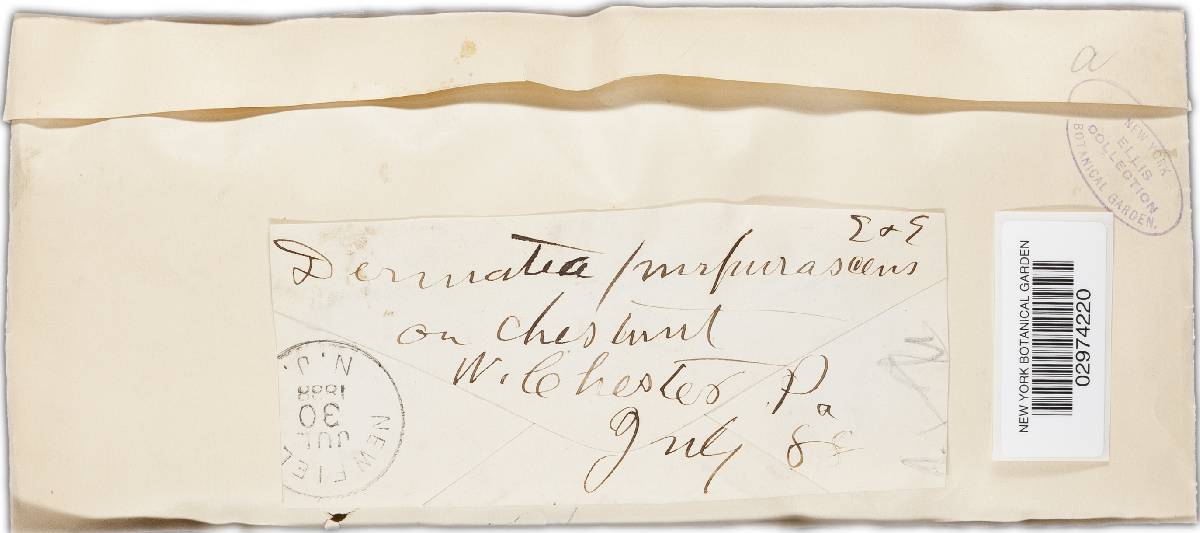 a
NEW YORK
ELLIS
COLLECTION
BOTANICAL GARDEN.
E & E
Dermatea purpurascens
on chestnut
W. Chester Pa
July 88
NEWFIEL
N.J.
JUL
30
1888
NEW YORK BOTANICAL GARDEN
02974220